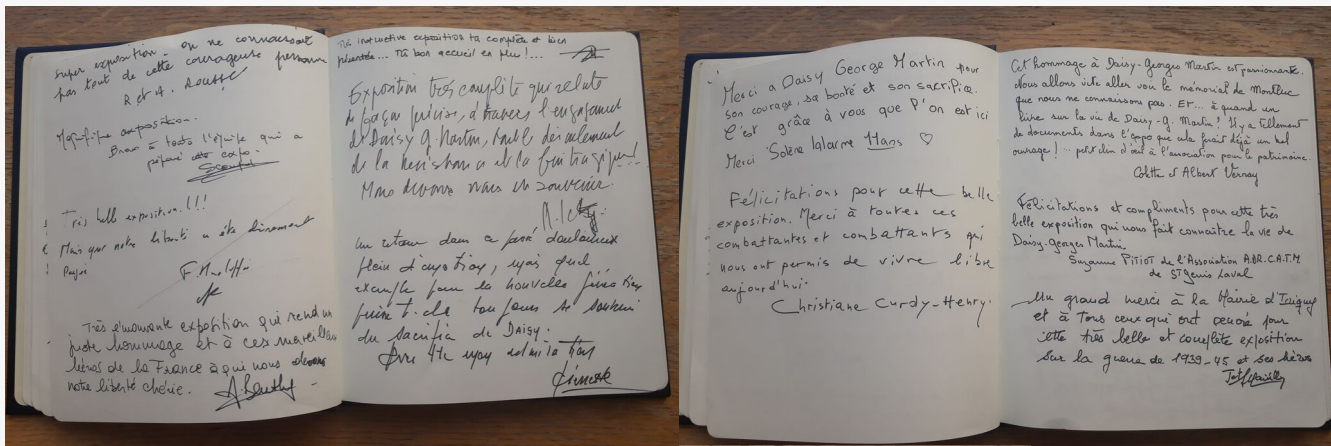 super exposition - on ne connaissait
pas tout de cette courageuse personne
R et A. Rousse
Magnifique exposition.
Bravo à toute l'équipe qui a
préparé cette expo.
Très belle exposition!!!
Mais que notre liberté a été chèrement
payée
Très émouvante exposition qui rend un
juste hommage et à ces merveilleux
héros de la France à qui nous devons
notre liberté chérie.
Très instructive exposition très complète et bien
présentée... Très bon accueil en plus!...
Exposition très complète qui relate
de façon précise, à travers l'engagement
de Daisy G. Martin, tout le déroulement
de la résistance et la fin tragique!...
Nous devons nous en souvenir.
Un retour dans ce passé douloureux
plein d'émotion, mais quel
exemple pour la nouvelle génération
puisse t-elle toujours se souvenir
du sacrifice de DAISY.
Avec toute mon admiration
Merci à Daisy George Martin pour
son courage, sa bonté et son sacrifice.
C'est grâce à vous que l'on est ici
Merci Solène lalarme Mans ♡
Félicitations pour cette belle
exposition. Merci à toutes ces
combattantes et combattants qui
nous ont permis de vivre libre
aujourd'hui.
Christiane Curdy-Henry.
Cet hommage à Daisy-Georges Martin est passionnante.
Nous allons vite aller voir le mémorial de Montluc
que nous ne connaissons pas. Et... à quand un
livre sur la vie de Daisy-G. Martin! Il y a tellement
de documents dans l'expo que cela ferait déjà un bel
ouvrage! ... petit clin d'œil à l'association pour le patrimoine.
Colette et Albert Vernay
Félicitations et compliments pour cette très
belle exposition qui nous fait connaître la vie de
Daisy-Georges Martin
Suzanne PITIOT de l'Association A.D.R.C.A.T.M
de St Genis Laval
Un grand merci à la Mairie d'Irigny
et à tous ceux qui ont oeuvré pour
cette très belle et complète exposition
sur la guerre de 1939-45 et ses héros